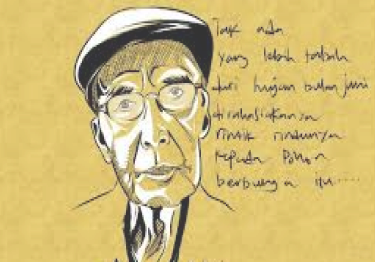 Tak ada
yang lebih tabah
dari hujan bulan juni
dirahasiakannya
rintik rindunya
kepada pohon
berbunga itu....